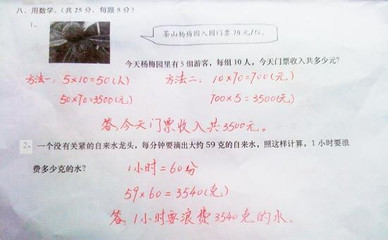 八、用数学。(共 25 分,每题 5 分)
1、
茶山杨梅园入园门票 70 元/位。
今天杨梅园里有 5 组游客,每组 10 人,今天门票收入共多少元?
方法一:5×10=50(人) 方法二:10×70=700(元)
50×70=3500(元) 700×5=3500(元)
答:今天门票收入共3500元。
2、一个没有关紧的自来水龙头,每分钟要滴出大约 59 克的自来水,照这样计算,1 小时要浪
费多少克的水?
1小时=60分
59×60=3540(克)
答:1小时要浪费3540克的水。